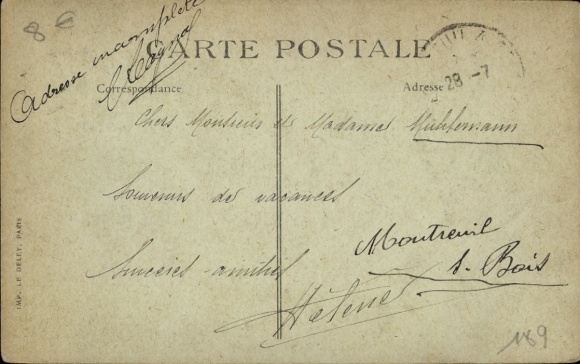 8 €
Adresse incomplète
CARTE POSTALE
28 -7
Correspondance
Adresse
Chers Monsieur et Madame Mühlemann
Souvenirs de vacances
Montreuil
s. Bois
Sincères amitiés
Hélène
IMP. LE DELEY, PARIS
189